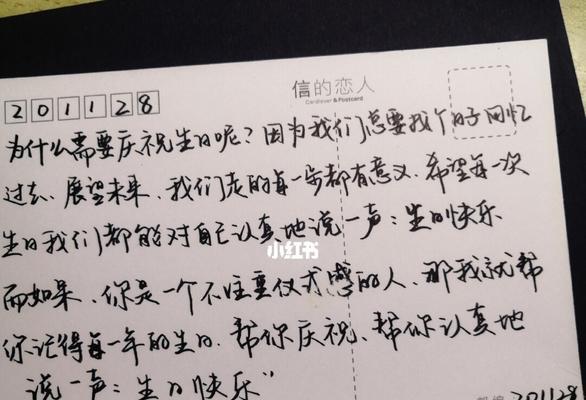 信的恋人
Cardlover & Postcard
201128
为什么需要庆祝生日呢？因为我们总要找个日子回忆
过去、展望未来，我们走的每一步都有意义，希望每一次
生日我们都能对自己认真地说一声：生日快乐
小红书
而如果，你是一个不注重仪式感的人，那我就帮
你记得每一年的生日，帮你庆祝、帮你认真地
说一声：生日快乐”
201128